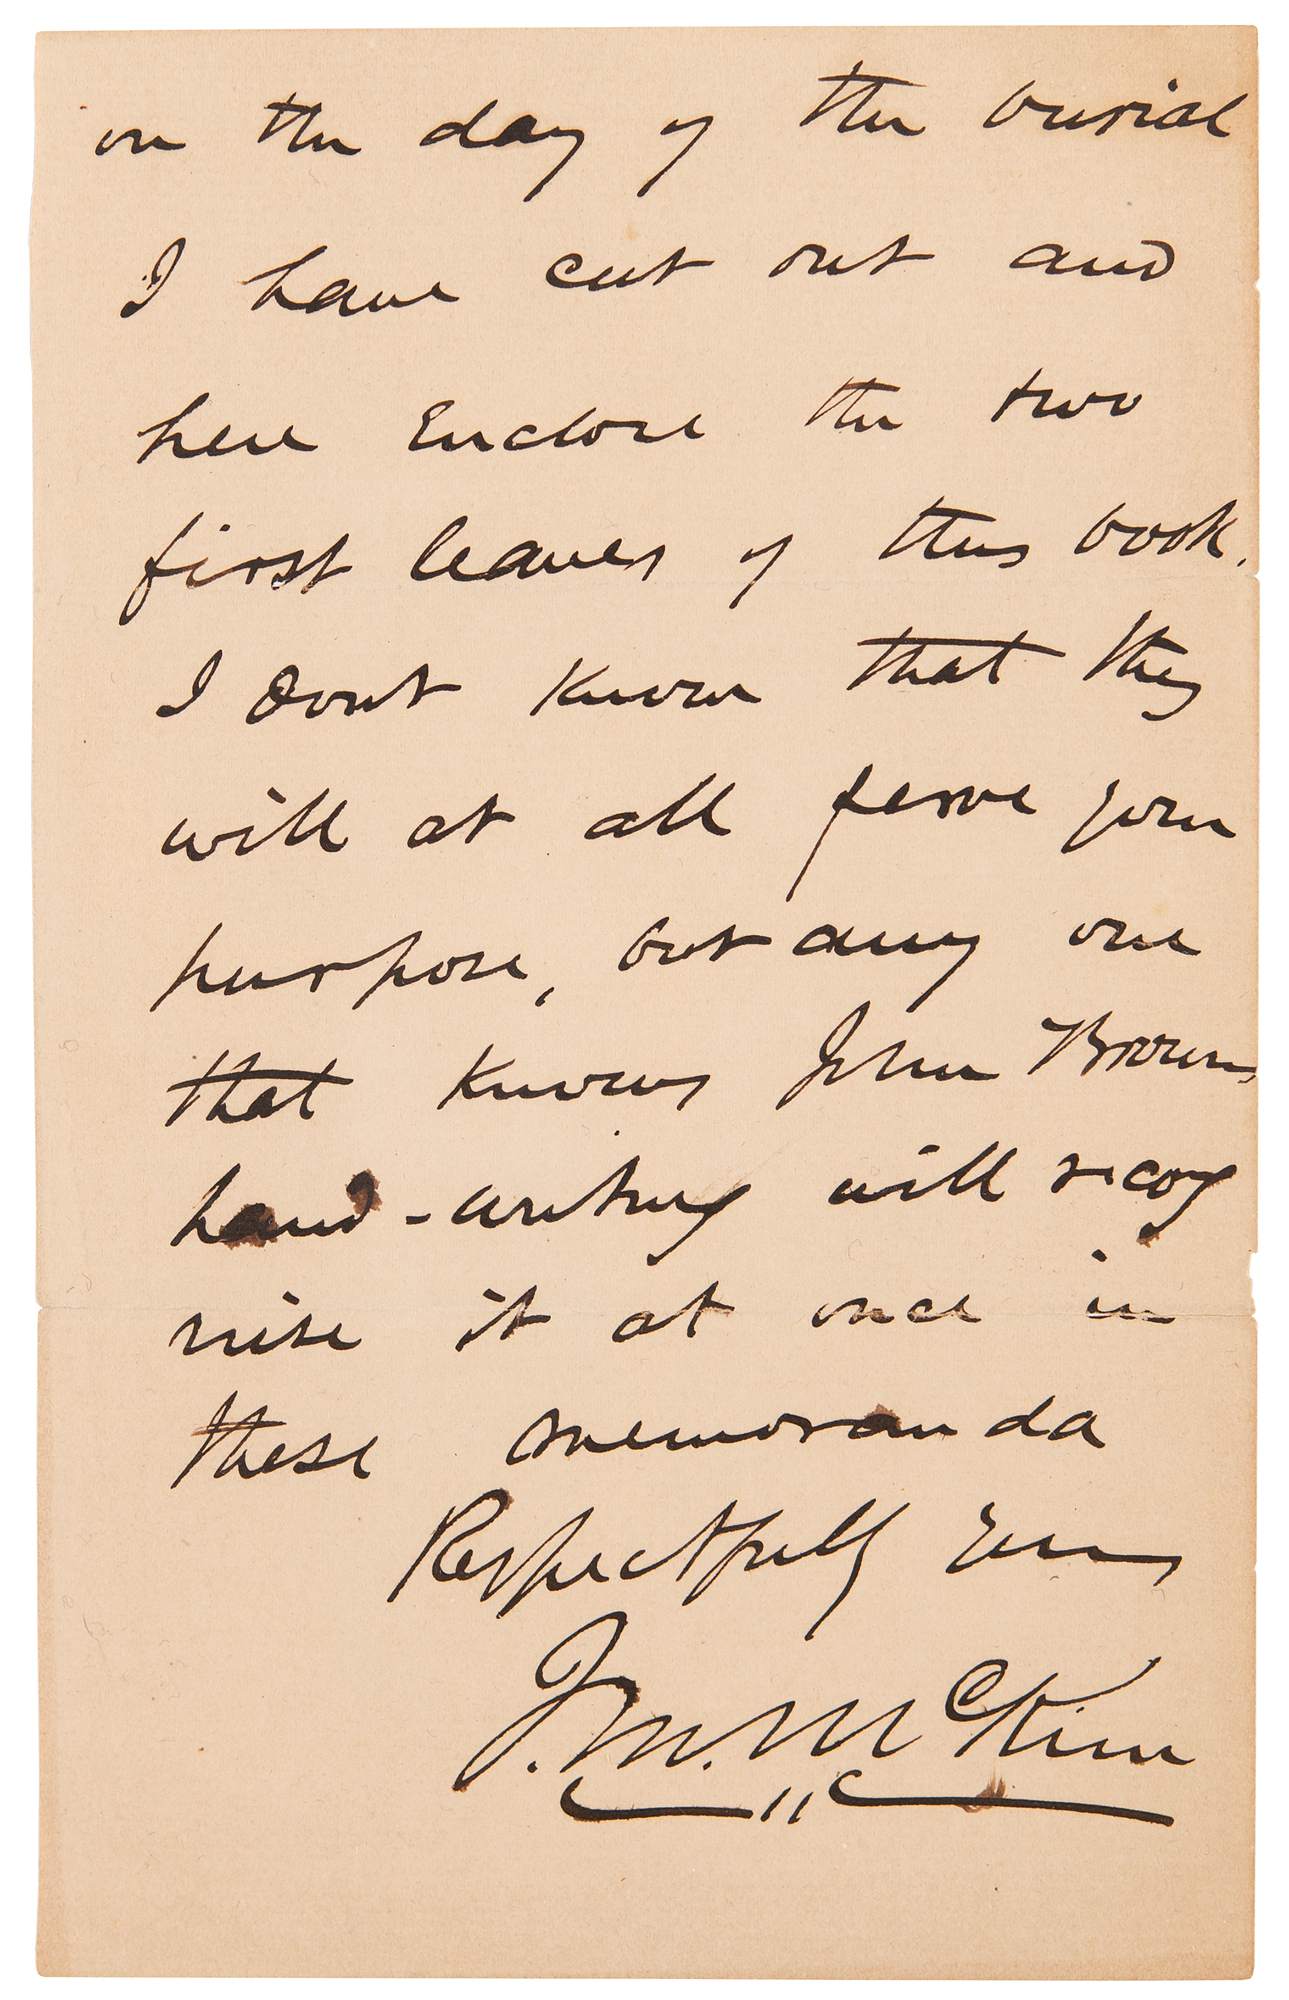 on the day of the burial
I have cut out and
here Enclose the two
first leaves of this book.
I don't know that they
will at all serve your
purpose, but any one
that knows John Browns
hand-writing will recog
nise it at once in
these memoranda
Respectfully Yours
J. M. McKim